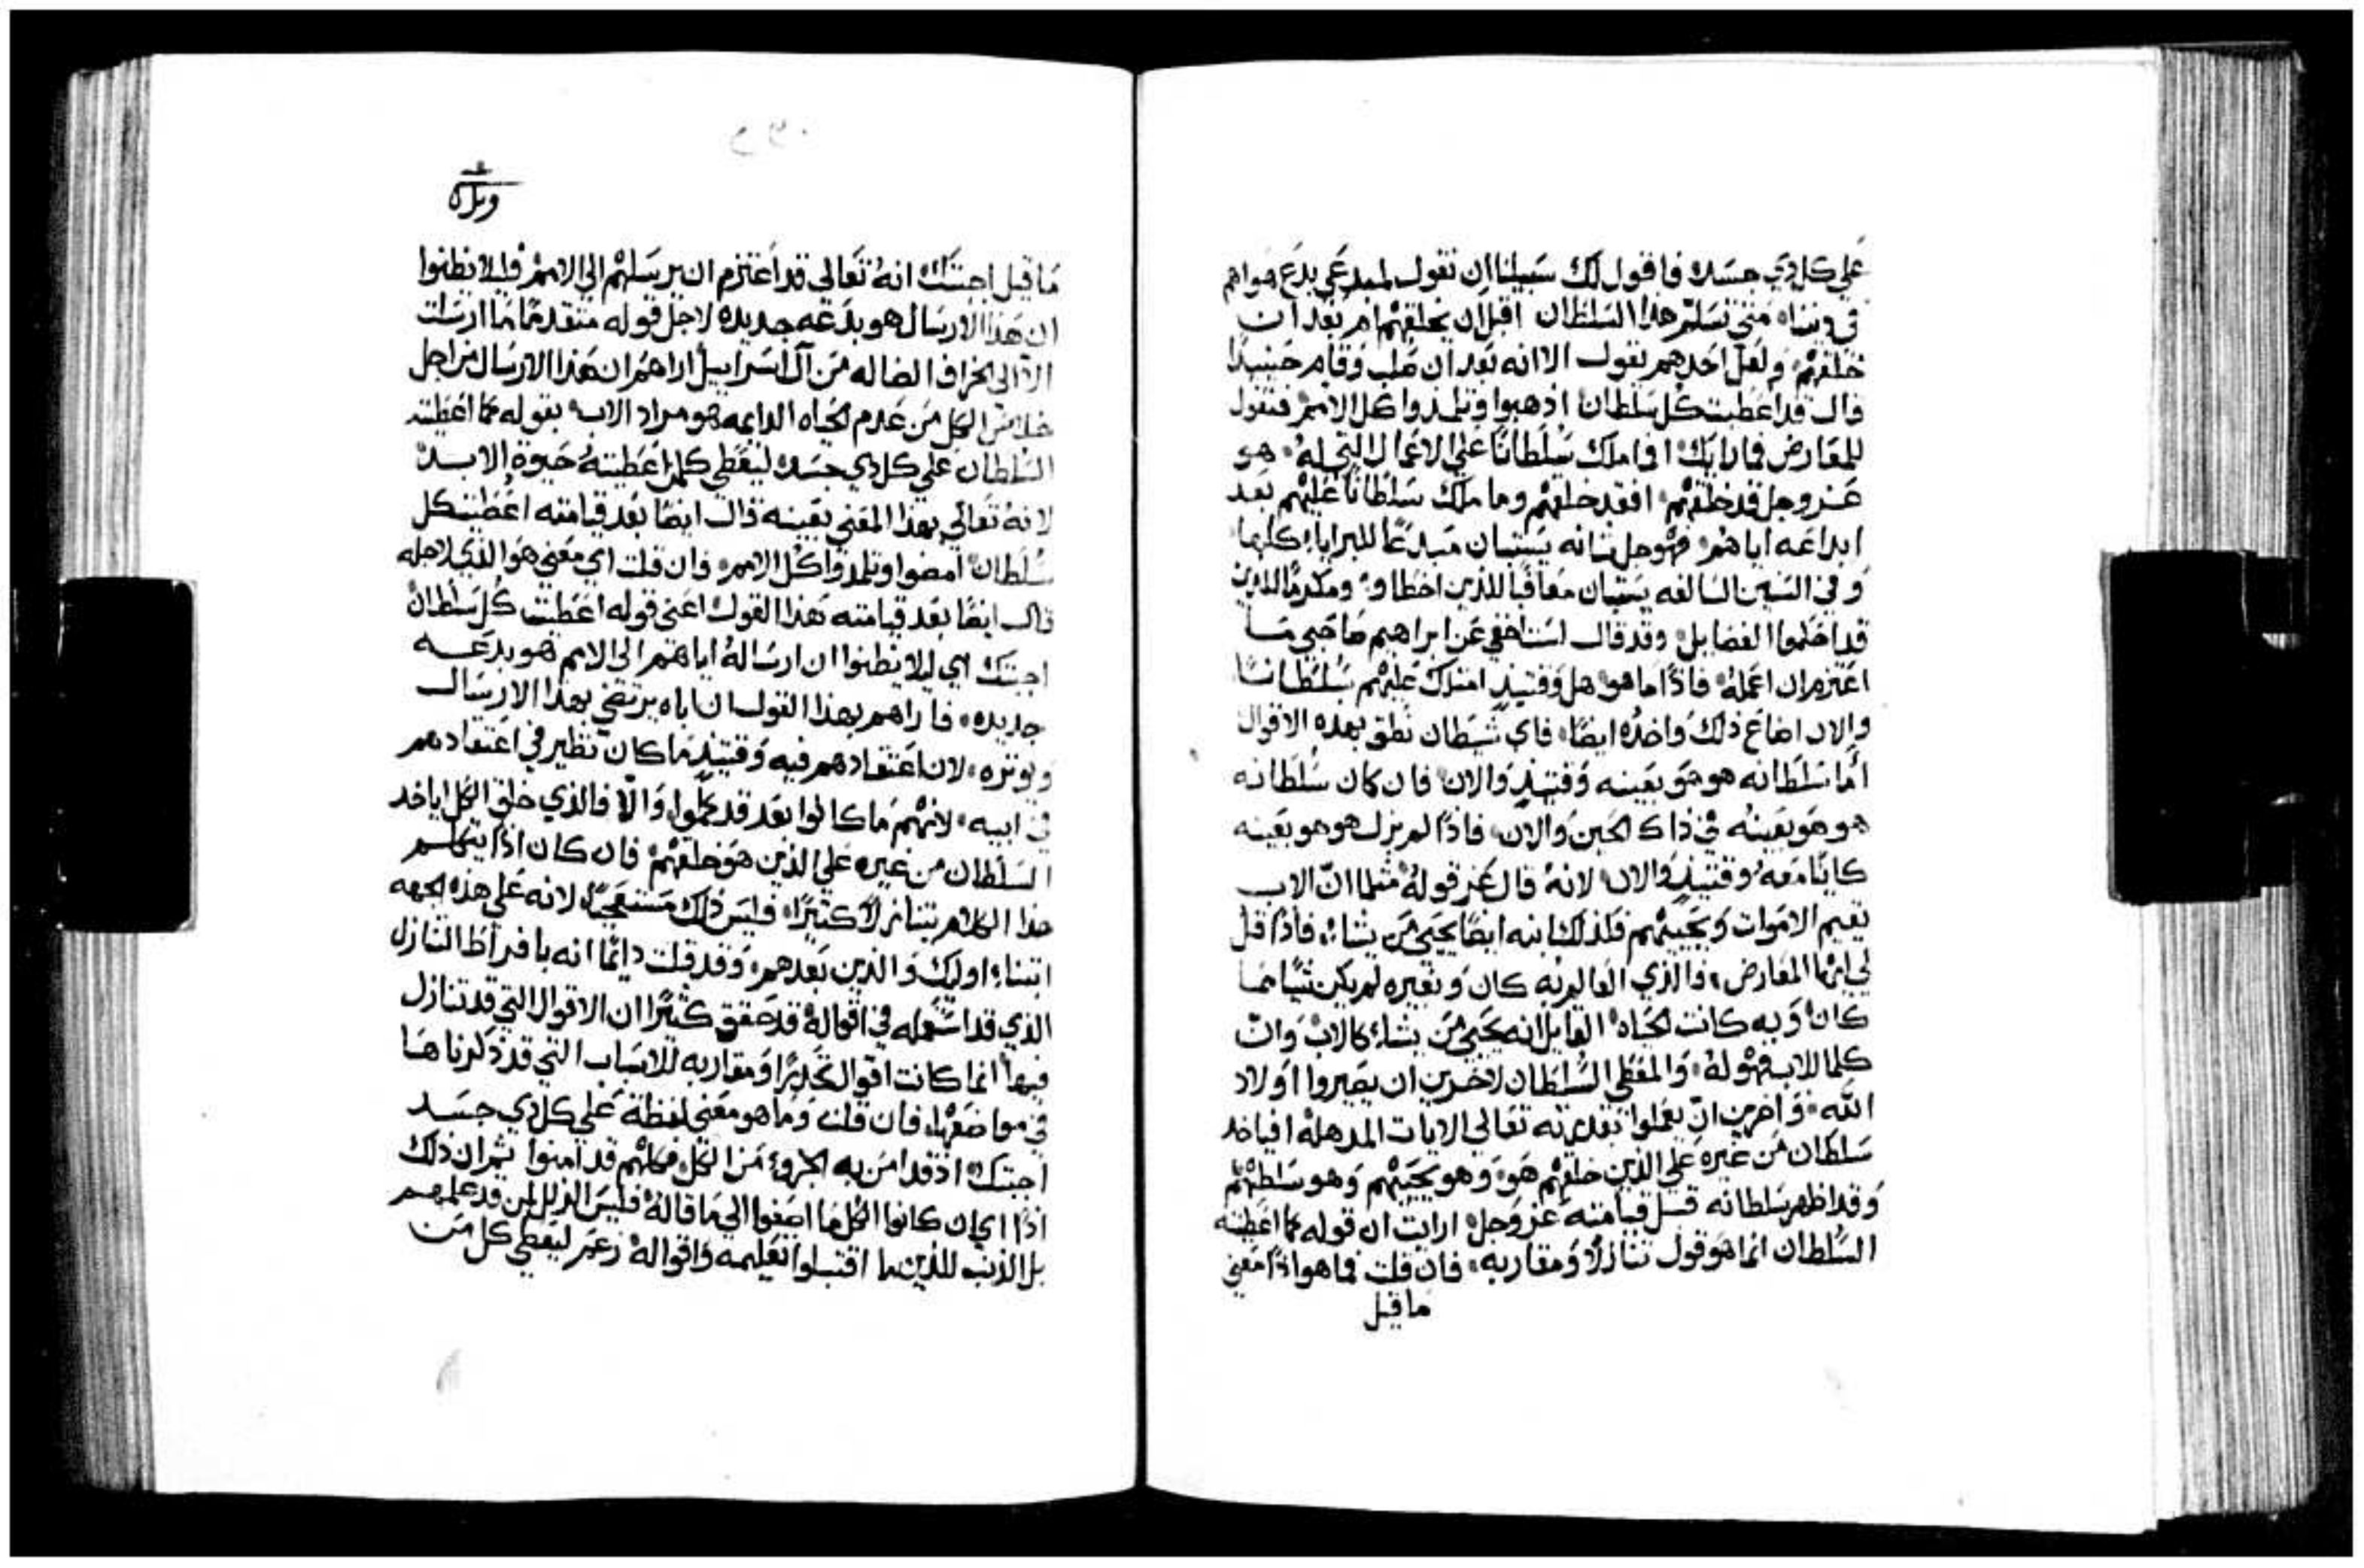 علي كل ذي جسد، فاقول لك سبيلنا ان نقول لمبدعي بدع هواهم
في متي تسلم هذا السلطان اقبل ان يخلقهم ام بعد ان
خلقهم، ولعل احدهم يقول الا انه بعد ان صلب وقام حينيذ
قال قد اعطيت كل سلطان اذهبوا وتلمذوا كل الامم، فنقول
للمعارض فما رايك افما ملك سلطانًا علي الاعمال التي له، هو
عز وجل قد خلقهم، افقد خلقهم وما ملك سلطانًا عليهم بعد
ابداعه اياهم، فهو جل شانه يستبان مبدعًا للبرايا كلها
وفي السنين السالفه يستبان معاقبًا للذين اخطاو، ومكرمًا الذين
قد احكموا الفضايل، وقد قال لست اخفي عن ابراهيم صاحبي مـا
اعتزم ان اعمله، فاذًا ما هو، هل وقتيذٍ امتلك عليهم سلطانًـا
والان اضاع ذلك واخذه ايضًا، فاي شيطان نطق بهذه الاقوال
أما سلطانه هو هو بعينه وقتيذٍ والان، فان كان سلطانه
هو هو بعينه في ذاك الحين والان، فاذًا لم يزل هو هو بعينه
كاينًا معه وقتيذٍ والان، لانه قال عز قوله، مثلما انّ الاب
يقيم الاموات ويحييهم فكذلك ابنه ايضًا يحيي من يشاء، فاذًا قل
لي ايها المعارض، فالذي العالم به كان وبغيره لم يكن شيًا مما
كان، وبه كانت الحياه، القايل انه يحيي من يشاء كالاب، وانّ
كلما للاب فهو له، والمعطي السلطان لاخرين ان يصيروا اولاد
الله، واخرين انّ يعملوا بقدرته تعالي الايات المذهله، افياخذ
سلطان من غيره علي الذين خلقهم هو، وهو يحييهم وهو سلطهم
وقد اظهر سلطانه قبل قيامته عز وجل، ارايت ان قوله كما اعطيته
السلطان انما هو قول تنازلاً ومقاربه، فان قلت فما هو اذًا معني
ما قيل

ما قيل اجبتك، انه تعالي قد اعتزم ان يرسلهم الي الامم، فليلا يظنوا
ان هذا الارسال هو بدعه جديده لاجل قوله متقدمًا ما ارسلت
الا الي الخراف الضاله من آل اسراييل، اراهم ان هذا الارسال من اجل
خلاص الكل من عدم الحياه الدايمه هو مراد الاب، بقوله كما اعطيته
السلطان علي كل ذي جسد، ليعطي كلمن اعطيته حيوة الابـد
لانه تعالي بهذا المعني بعينه قال ايضًا بعد قيامته اعطيت كل
سلطان، امضوا وتلمذوا كل الامم، فان قلت اي معني هو الذي لاجله
قال ايضًا بعد قيامته هذا القول، اعني قوله اعطيت كل سلطان
اجبتك اي ليلا يظنوا ان ارساله اياهم الي الامم هو بدعـه
جديده، فاراهم بهذا القول ان اباه يرتضي بهذا الارسال
ويوثره، لان اعتقادهم فيه وقتيذٍ ما كان نظير في اعتقادهم
في ابيه، لانهم ما كانوا بعد قد كملوا، والّا فالذي خلق الكل اياخذ
السلطان من غيره علي الذين هو خلقهم، فان كان اذًا يتكلـم
هذا الكلام بتنازلاً كثيرًا، فليس ذلك مستعجبًا، لانه علي هذه الجهه
ابتناء اوليك والذين بعدهم، وقد قلت دايمًا انه بافراط التنازل
الذي قد استعمله في اقواله، قد حقق كثيرًا ان الاقوال التي قد تنازل
فيها، انما كانت اقوال تحديرًا ومقاربه للاسباب التي قد ذكرناهـا
في مواضعها، فان قلت وما هو معني لفظة، علي كل ذي جسـد
اجبتك، اذ قد امن به الجزوء من الكل، فكلهم قد امنوا، ثم ان ذلك
اذًا اي ان كانوا الكل ما اصغوا الي ما قاله، فليس الذلل لمن قد علمهـم
بل الذنب للذين ما اقتبلوا تعليمه واقواله، زعم ليعطي كل مـن